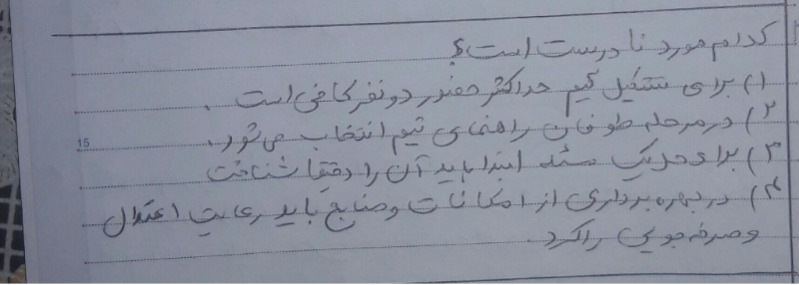 کدام مورد نا درست است؟
۱) برای تشکیل تیم حداکثر حضور دو نفر کافی است .
۲) در مرحله طوفان راهنمای تیم انتخاب می شود.
15
۳) برای حل یک مسئله ابتدا باید آن را دقیقا شناخت
۴) در بهره برداری از امکانات و منابع باید رعایت اعتدال
و صرفه جویی را کرد.